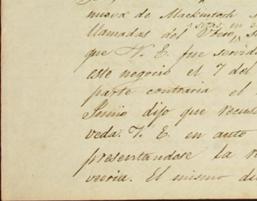 nueva de Mackintosh
llamadas del
que V. E. fue servido
este negocio el 7 del
parte contraria el
Junio dijo que recus
veda. V. E. en auto
presentandose la r
vincia. El mismo di